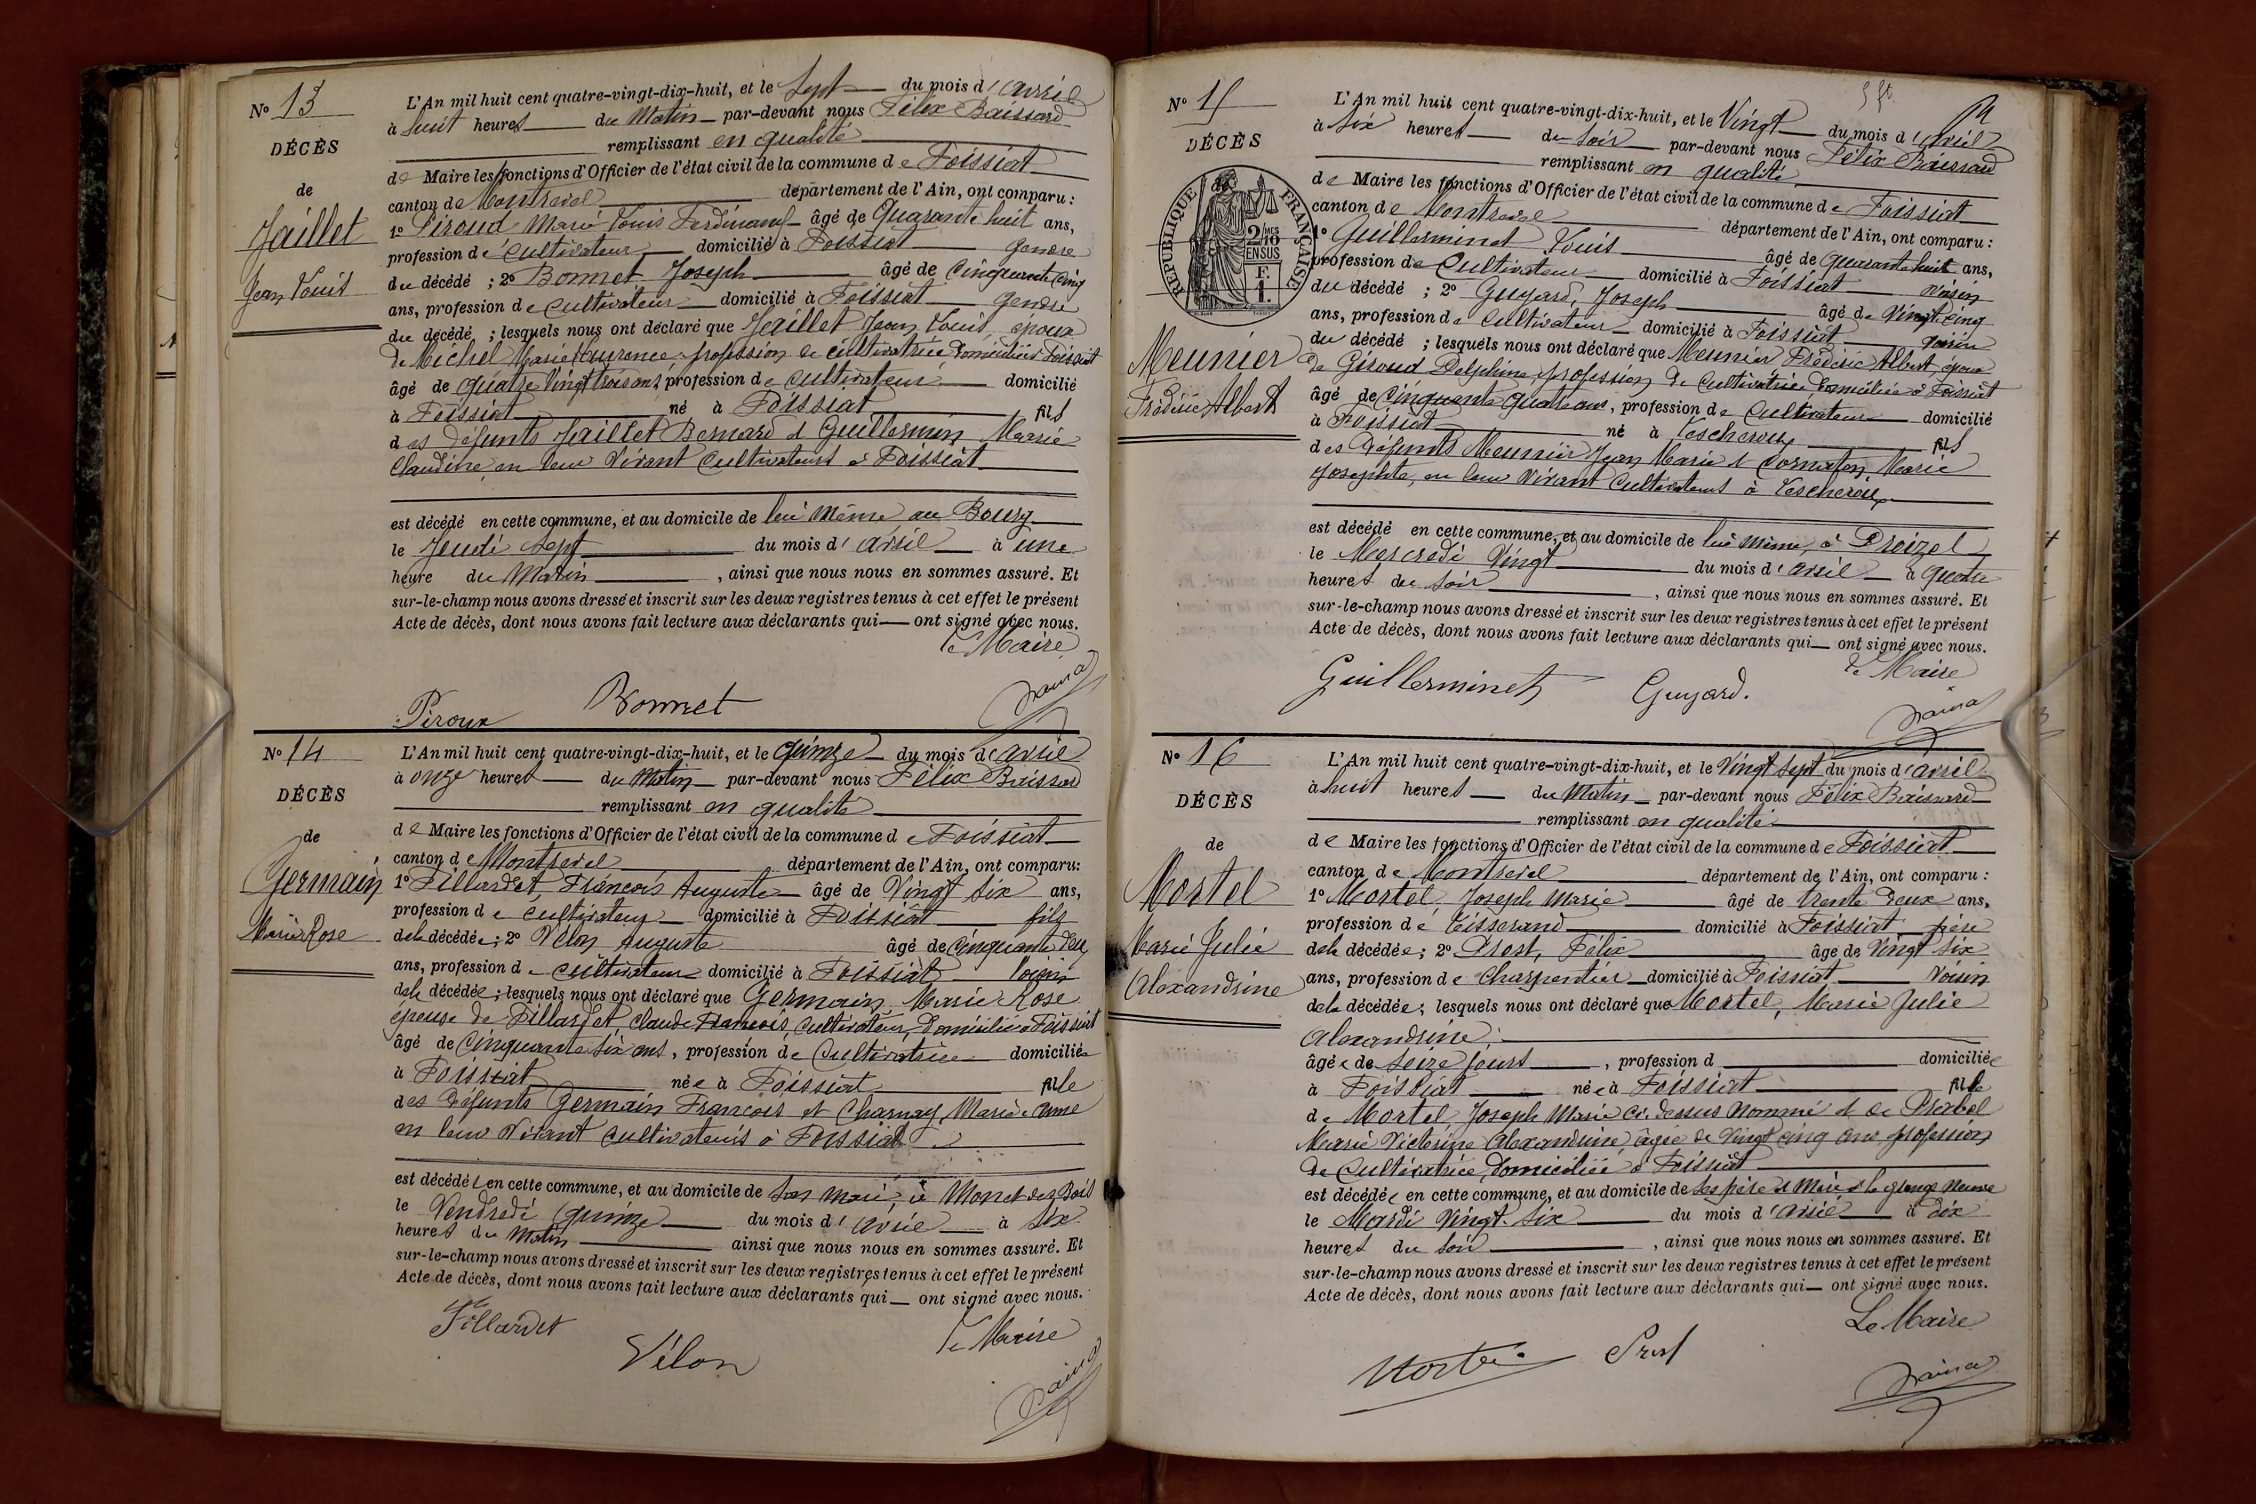 N° 13
DÉCÈS
de
Jaillet
Jean Louis
L'An mil huit cent quatre-vingt-dix-huit, et le Sept du mois d'avril
à huit heures du Matin par-devant nous Félix Baissard
remplissant en qualité
de Maire les fonctions d'Officier de l'état civil de la commune de Foissiat
canton de Montrevel département de l'Ain, ont comparu :
1° Piroud Marie Louis Ferdinand âgé de Quarante huit ans,
profession de cultivateur domicilié à Foissiat gendre
du décédé ; 2° Bonnet Joseph âgé de Cinquante cinq
ans, profession de cultivateur domicilié à Foissiat gendre
du décédé ; lesquels nous ont déclaré que Jaillet Jean Louis, époux
de Michel Marie Laurence profession de cultivatrice domiciliée Foissiat
âgé de quatre Vingt trois ans, profession de cultivateur domicilié
à Foissiat né à Foissiat fils
des défunts Jaillet Bernard et Guillermin Marie
Claudine en leur Vivant Cultivateurs à Foissiat
est décédé en cette commune, et au domicile de lui même au Bourg
le Jeudi Sept du mois d'avril à une
heure du Matin , ainsi que nous nous en sommes assuré. Et
sur-le-champ nous avons dressé et inscrit sur les deux registres tenus à cet effet le présent
Acte de décès, dont nous avons fait lecture aux déclarants qui ont signé avec nous.
Le Maire
Piroux Bonnet
N° 14
DÉCÈS
de
Germain
Marie Rose
L'An mil huit cent quatre-vingt-dix-huit, et le quinze du mois d'avril
à onze heures du Matin par-devant nous Félix Baissard
remplissant en qualité
de Maire les fonctions d'Officier de l'état civil de la commune de Foissiat
canton de Montrevel département de l'Ain, ont comparu :
1° Fillardet, François Auguste âgé de Vingt six ans,
profession de cultivateur domicilié à Foissiat fils
de la décédée ; 2° Vélon Auguste âgé de Cinquante deux
ans, profession de cultivateur domicilié à Foissiat voisin
de la décédée ; lesquels nous ont déclaré que Germain Marie Rose
épouse de Fillardet, Claude François, cultivateur, domiciliée à Foissiat
âgé de Cinquante six ans, profession de Cultivatrice domiciliée
à Foissiat née à Foissiat fille
des défunts Germain François et Charnay Marie Anne
en leur Vivant cultivateurs à Foissiat
est décédée en cette commune, et au domicile de son mari, à Monet des Bois
le Vendredi quinze du mois d'avril à six
heures du Matin ainsi que nous nous en sommes assuré. Et
sur-le-champ nous avons dressé et inscrit sur les deux registres tenus à cet effet le présent
Acte de décès, dont nous avons fait lecture aux déclarants qui ont signé avec nous.
Le Maire
Fillardet
Vélon
N° 15
DÉCÈS
de
RÉPUBLIQUE FRANÇAISE
2/10MES
EN SUS
F.
1.
Meunier
Frédéric Albert
L'An mil huit cent quatre-vingt-dix-huit, et le Vingt du mois d'avril
à six heures du soir par-devant nous Félix Baissard
remplissant en qualité
de Maire les fonctions d'Officier de l'état civil de la commune de Foissiat
canton de Montrevel département de l'Ain, ont comparu :
1° Guillerminet Louis âgé de quarante huit ans,
profession de Cultivateur domicilié à Foissiat voisin
du décédé ; 2° Guyard, Joseph âgé de Vingt cinq
ans, profession de Cultivateur domicilié à Foissiat voisin
du décédé ; lesquels nous ont déclaré que Meunier Frédéric Albert époux
de Giroud Delphine, profession de Cultivatrice domiciliée à Foissiat
âgé de Cinquante quatre ans, profession de Cultivateur domicilié
à Foissiat né à Lescheroux fils
des défunts Meunier Jean Marie et Cornaton Marie
Josephte, en leur Vivant Cultivateurs à Lescheroux
est décédé en cette commune, et au domicile de lui même, à Preizel
le Mercredi Vingt du mois d'avril à quatre
heures du soir , ainsi que nous nous en sommes assuré. Et
sur-le-champ nous avons dressé et inscrit sur les deux registres tenus à cet effet le présent
Acte de décès, dont nous avons fait lecture aux déclarants qui ont signé avec nous.
Le Maire
Guillerminet Guyard.
N° 16
DÉCÈS
de
Mortel
Marie Julie
Alexandrine
L'An mil huit cent quatre-vingt-dix-huit, et le Vingt Sept du mois d'avril
à huit heures du Matin par-devant nous Félix Baissard
remplissant en qualité
de Maire les fonctions d'Officier de l'état civil de la commune de Foissiat
canton de Montrevel département de l'Ain, ont comparu :
1° Mortel Joseph Marie âgé de trente deux ans,
profession de Tisserand domicilié à Foissiat père
de la décédée ; 2° Prost, Félix âgé de Vingt six
ans, profession de Charpentier domicilié à Foissiat Voisin
de la décédée ; lesquels nous ont déclaré que Mortel, Marie Julie
Alexandrine,
âgée de seize jours , profession d domiciliée
à Foissiat née à Foissiat fille
de Mortel, Joseph Marie ci-dessus nommé et de Prabel
Marie Victorine Alexandrine âgée de Vingt cinq ans profession
de Cultivatrice, domiciliée à Foissiat
est décédée en cette commune, et au domicile de ses père et mère à la grange Neuve
le Mardi Vingt-six du mois d'avril à dix
heures du soir , ainsi que nous nous en sommes assuré. Et
sur-le-champ nous avons dressé et inscrit sur les deux registres tenus à cet effet le présent
Acte de décès, dont nous avons fait lecture aux déclarants qui ont signé avec nous.
Le Maire
Prost